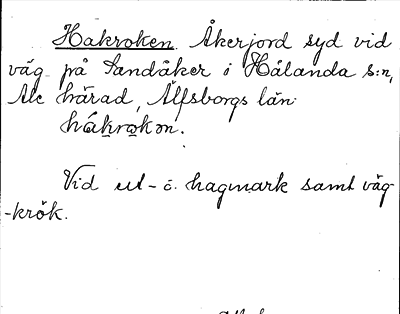 Hakroken. Åkerjord syd vid
väg på Sandåker i Hålanda s:n,
Ale härad, Älfsborgs län.
håkrokən.
Vid ut- ö. hagmark samt väg
-krök.